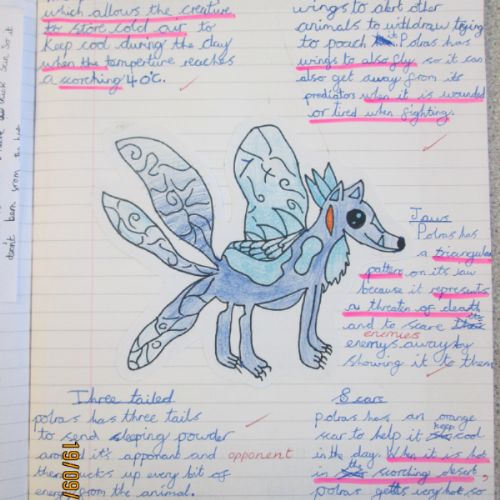 which allows the creature
to store cold air to
keep cool during the day
when the temperture reaches
a scorching 40°c.
wings to alert other
animals to withdraw trying
to poach it Polras has
wings to also fly so it can
also get away from its
predators when it is wounded
or tired when fighting.
Jaws
Polras has
a triangular
pattern on its jaw
because it represents
a threaten of death
and to scare its
enemies
enemys away by
showing it to them
Three tailed
polras has three tails
to send sleeping powder
around it's apponant and opponent
then sucks up every bit of
energy from the animal.
Scars
polras has an orange
scar to help it keep cool
in the day. When it is hot
in the scorching desert,
polras gets very hot so
don't burn from the hot
19/09/